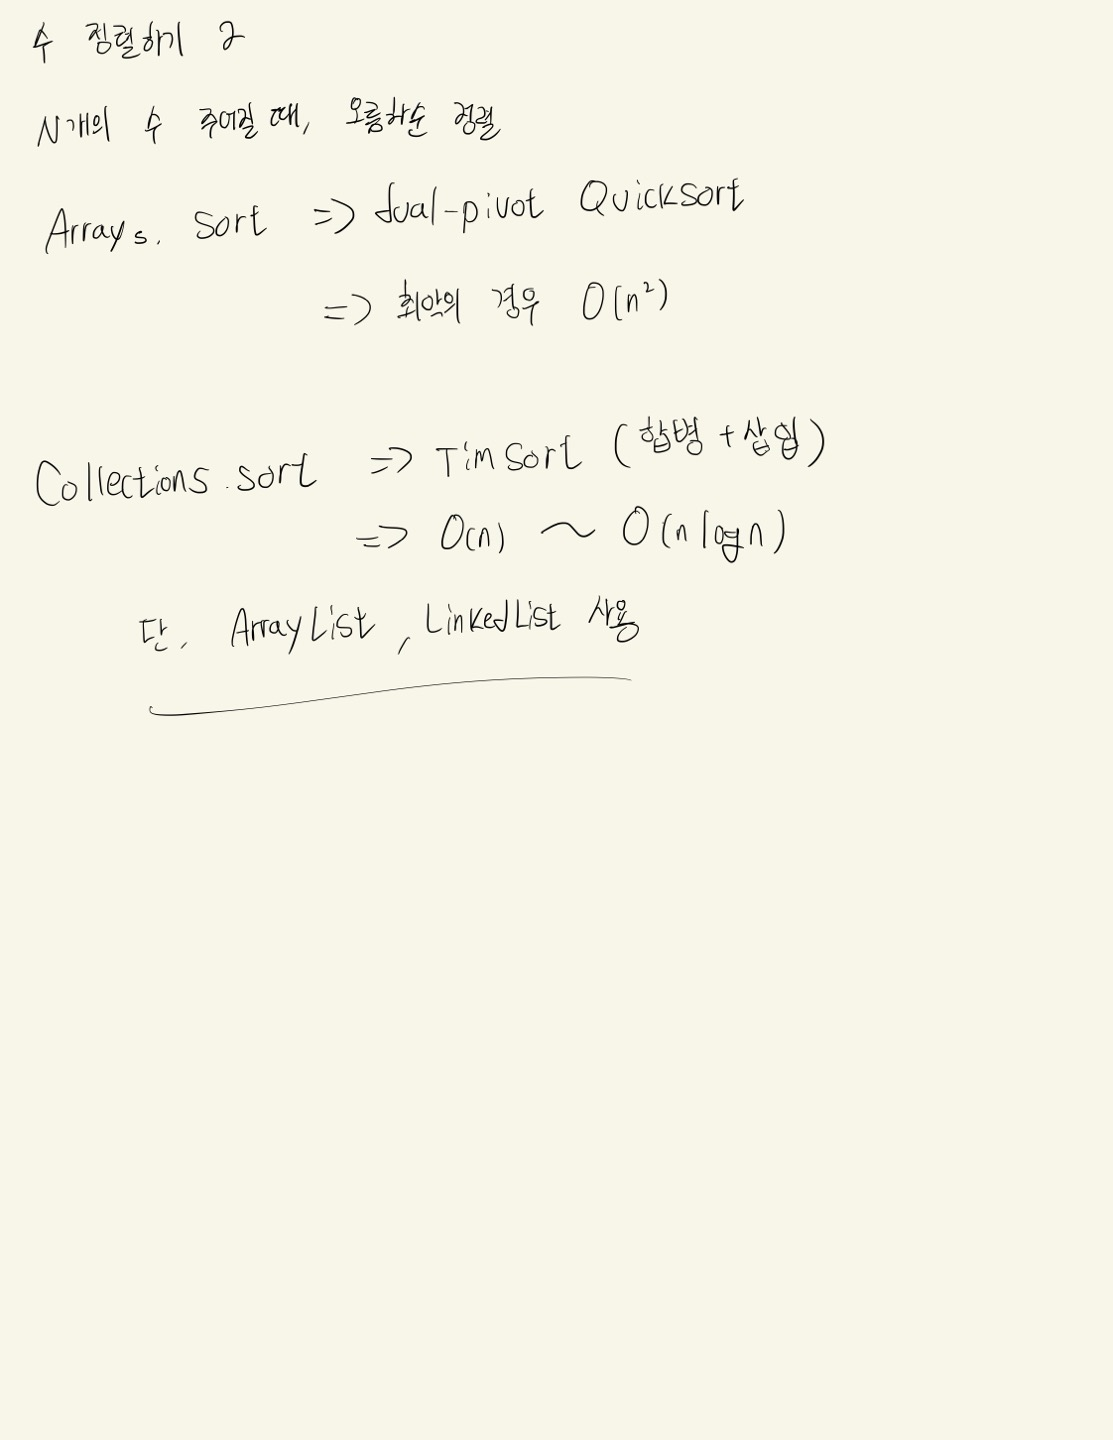 수 정렬하기 2
N개의 수 주어질 때, 오름차순 정렬
Arrays. sort => dual-pivot Quicksort
=> 최악의 경우 O(n²)
Collections.sort => TimSort (합병+삽입)
=> O(n) ~ O(n log n)
단, ArrayList, LinkedList 사용